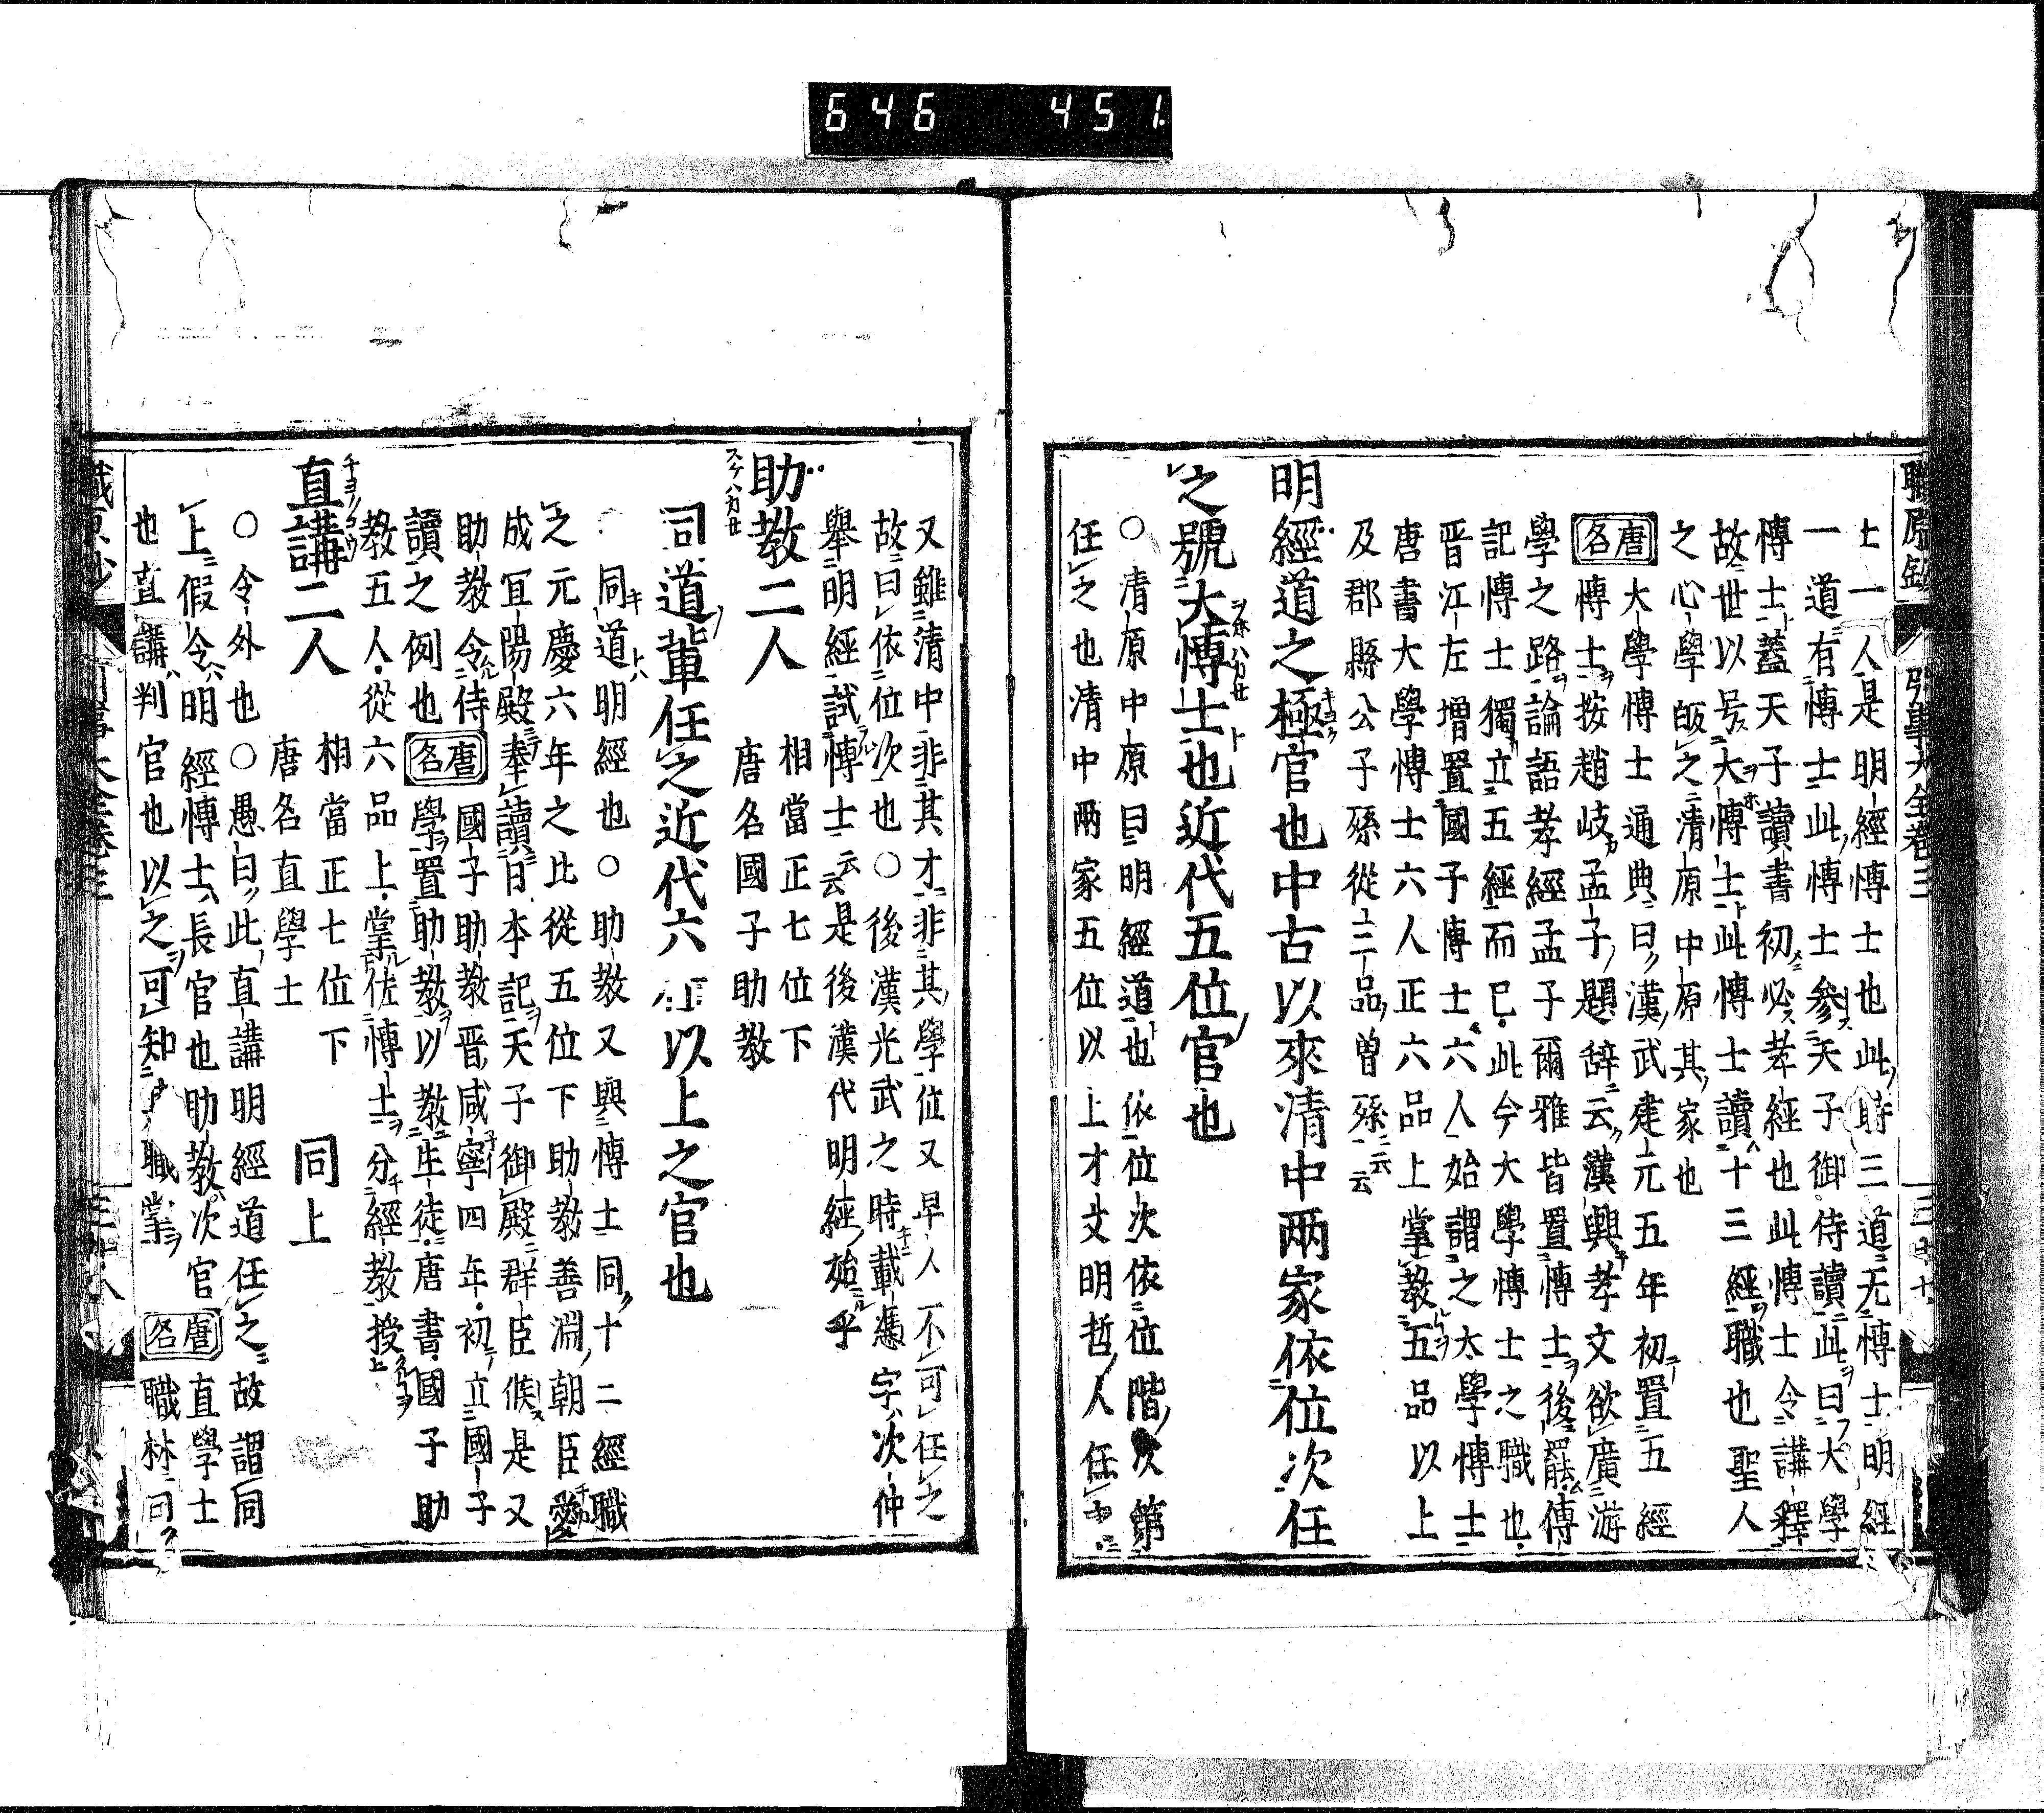 646 451
士一人是明經博士也此時三道无博士明經
一道有博士此博士參天子御侍讀此曰大學
博士蓋天子讀書初必孝經也此博士令講釋
故世以号大博士此博士讀十三經職也聖人
之心學皈之清原中原其家也
唐名 大學博士通典曰漢武建元五年初置五經
博士按趙岐孟子題辞云漢興孝文欲廣游
學之路論語孝經孟子爾雅皆置博士後罷傳
記博士獨立五經而已此今大學博士之職也
晋江左増置國子博士六人始謂之大學博士
唐書大學博士六人正六品上掌教五品以上
及郡縣公子孫從三品曾孫云云
明經道之極官也中古以來清中兩家依位次任
之號大博士也近代五位官也
○清原中原曰明經道也依位次依位階次第
任之也清中兩家五位以上才文明哲人任
又雖清中非其才非其學位又早人不可任之
故曰依位次也○後漢光武之時載憑字次仲
舉明經試博士云云是後漢代明經始乎
助教二人 相當正七位下
唐名國子助教
同道輩任之近代六以上之官也
同道明經也○助教又與博士同十二經職
之元慶六年之比從五位下助教善淵朝臣愛
成冝陽殿奉讀日本記天子御殿群臣候是又
助教令侍國子助教晋咸寧四年初立國子
讀之例也 唐名 學置助教以教生徒唐書國子助
教五人從六品上掌佐博士分經教授
直講二人 相當正七位下 同上
唐名直學士
○令外也○愚曰此直講明經道任之故謂同
上假令明經博士長官也助教次官 唐名 直學士
也直講判官也以之可知職掌 職林同